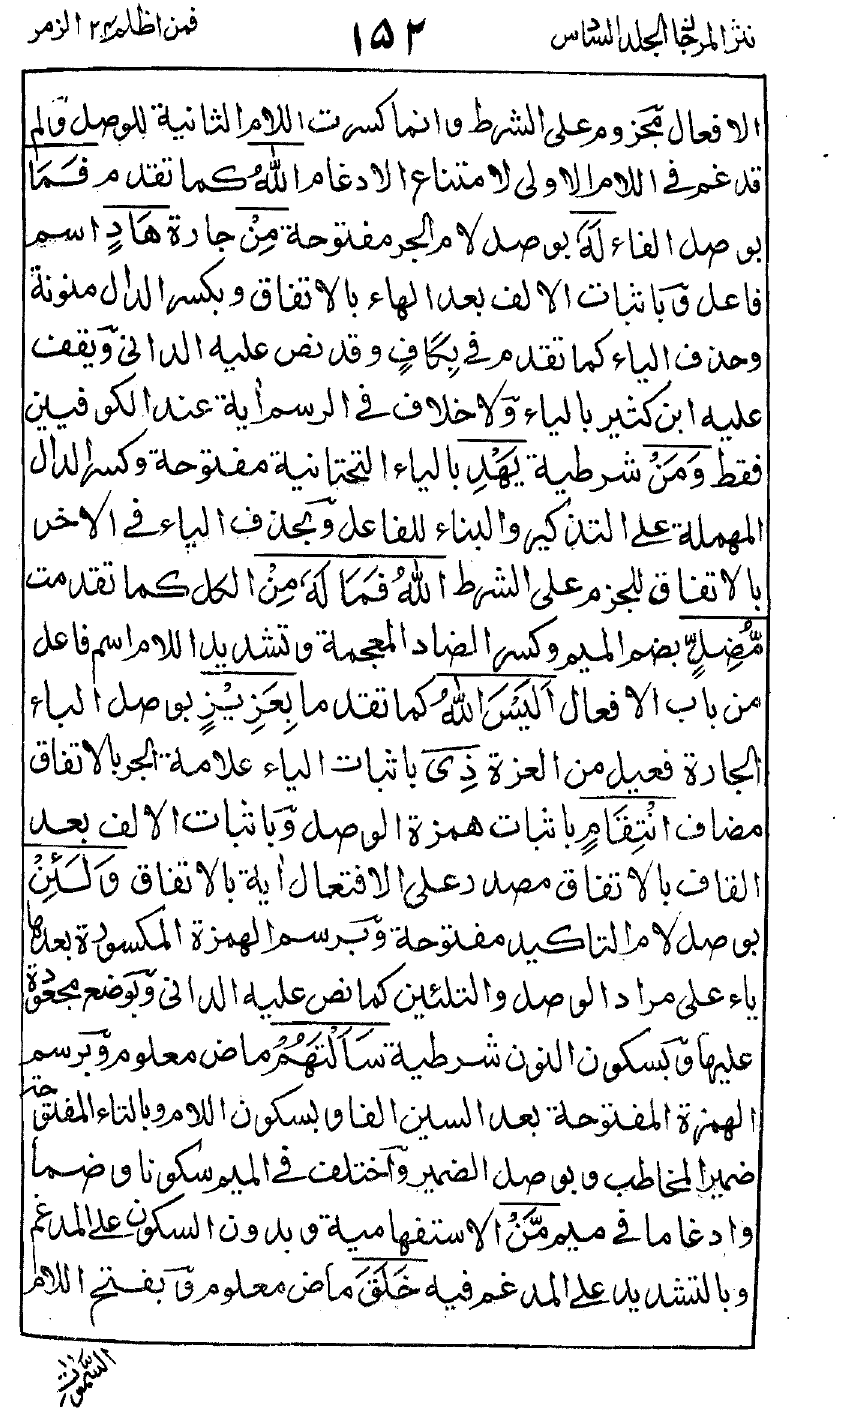 نثر المرجان الجلد السادس ١٥٢ فمن اظلم ٢٤ الزمر
الافعال مجزوم على الشرط وانما كسرت اللام الثانية للوصل ولم
تدغم فى اللام الاولى لامتناع الادغام اللّٰهُ كما تقدم فَمَا
بوصل الفاء لَهٗ بوصل لام الجر مفتوحة مِنْ جارة هَادٍ اسم
فاعل وباثبات الالف بعد الهاء بالاتفاق وبكسر الدال منونة
وحذف الياء كما تقدم فى بِكَافٍ وقد نص عليه الدانى ويقف
عليه ابن كثير بالياء ولا خلاف فى الرسم اٰية عند الكوفيين
فقط وَمَنْ شرطية يَهْدِ بالياء التحتانية مفتوحة وكسر الدال
المهملة على التذكير والبناء للفاعل وبحذف الياء فى الاخر
بالاتفاق للجزم على الشرط اللّٰهُ فَمَا لَهٗ مِنْ الكل كما تقدمت
مُّضِلٍّ بضم الميم وكسر الضاد المعجمة وتشديد اللام اسم فاعل
من باب الافعال اَلَيْسَ اللّٰهُ كما تقدما بِعَزِيْزٍ بوصل الباء
الجارة فعيل من العزة ذِى باثبات الياء علامة الجر بالاتفاق
مضاف انْتِقَامٍ باثبات همزة الوصل وباثبات الالف بعد
القاف بالاتفاق مصدر على الافتعال اٰية بالاتفاق وَلَئِنْ
بوصل لام التاكيد مفتوحة وبرسم الهمزة المكسورة بعدها
ياء على مراد الوصل والتلئين كما نص عليه الدانى وبوضع مجعودة
عليها وبسكون النون شرطية سَاَلْتَهُمْ ماض معلوم وبرسم
الهمزة المفتوحة بعد السين الفا وبسكون اللام وبالتاء المفتوحة
ضمير المخاطب وبوصل الضمير واختلف فى الميم سكونا وضما
وادغاما فى ميم مَّنْ الاستفهامية وبدون السكون على المدغم
وبالتشديد على المدغم فيه خَلَقَ ماض معلوم وبفتح اللام
السَّمٰوٰتِ